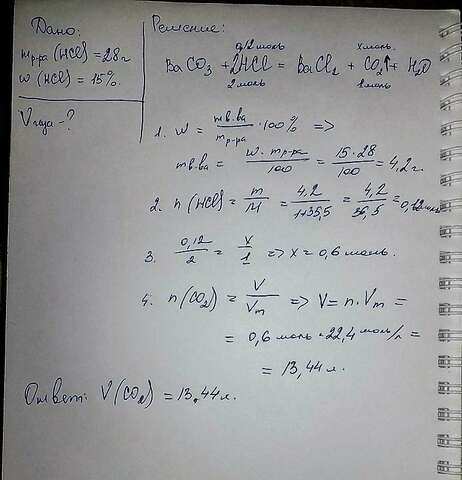 Дано:
m р-ра (HCl) = 28 г
w (HCl) = 15%.
V газа - ?
Решение:
0,12 моль x моль
BaCO3 + 2HCl = BaCl2 + CO2↑ + H2O
2 моль 1 моль
1. w = m в-ва / m р-ра · 100% =>
m в-ва = w · m р-ра / 100 = 15 · 28 / 100 = 4,2 г.
2. n (HCl) = m / M = 4,2 / 1+35,5 = 4,2 / 36,5 = 0,12 моль
3. 0,12 / 2 = x / 1 => x = 0,6 моль.
4. n (CO2) = V / Vm => V = n · Vm =
= 0,6 моль · 22,4 моль/л =
= 13,44 л.
Ответ: V (CO2) = 13,44 л.